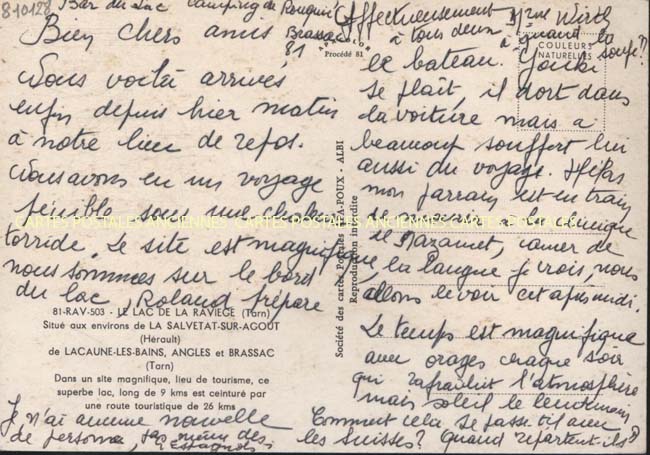 810128 Bar du Lac Camping de Rouquié
Brassac
81
Bien chers amis
Nous voilà arrivés
enfin depuis hier matin
à notre lieu de repos.
Nous avons eu un voyage
pénible sous une chaleur
torride. Le site est magnifique
nous sommes sur le bord
du lac, Roland prépare
le bateau. Youki
se plait, il dort dans
la voiture mais a
beaucoup souffert lui
aussi du voyage. Hélas
mon parrain est en train
de mourir à la clinique
de Mazamet, cancer de
la langue je crois, nous
allons le voir cet après midi.
Le temps est magnifique
avec orages chaque soir
qui rafraichit l'atmosphère
mais soleil le lendemain
Comment cela se passe t'il avec
les Suisses? Quand repartent-ils?
Je n'ai aucune nouvelle
de personne, pas même des
Espagnols
Affectueusement
à tous deux
Mme Wirth
à quand la
soupe??
APPOLLOR
Procédé 81
COULEURS
NATURELLES
Société des cartes Postales APA-POUX - ALBI
Reproduction interdite
81-RAV-503 - LE LAC DE LA RAVIÈGE (Tarn)
Situé aux environs de LA SALVETAT-SUR-AGOUT
(Hérault)
de LACAUNE-LES-BAINS, ANGLES et BRASSAC
(Tarn)
Dans un site magnifique, lieu de tourisme, ce
superbe lac, long de 9 kms est ceinturé par
une route touristique de 26 kms
CARTES POSTALES ANCIENNES CARTES POSTALES ANCIENNES CARTES POSTALES